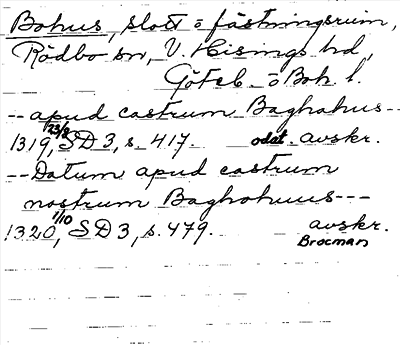 Bohus, slott o fästningsruin,
Rödbo sn, V. Hisings hd,
Göteb. o Boh. l.
-- apud castrum Baghahus --
1319 23/8, SD 3, s. 417. odat. avskr.
-- Datum apud castrum
nostrum Baghohuus ---
1320 1/10, SD 3, s. 479. avskr.
Brocman